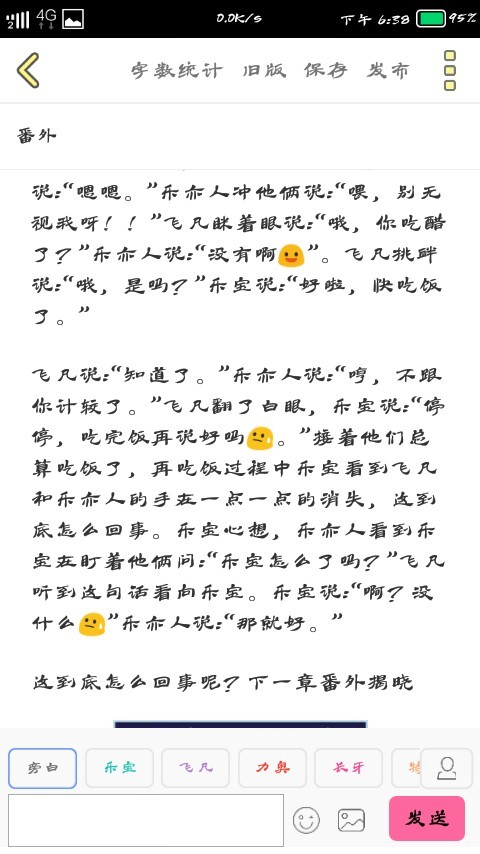 2 4G 0.0K/s 下午 6:38 95%
字数统计 旧版 保存 发布
番外
说:“嗯嗯。”乐亦人冲他俩说:“喂，别无
视我呀！！”飞凡眯着眼说:“哦，你吃醋
了？”乐亦人说:“没有啊😃”。飞凡挑衅
说:“哦，是吗？”乐宝说:“好啦，快吃饭
了。”
飞凡说:“知道了。”乐亦人说:“哼，不跟
你计较了。”飞凡翻了白眼，乐宝说:“停
停，吃完饭再说好吗😓。”接着他们总
算吃饭了，再吃饭过程中乐宝看到飞凡
和乐亦人的手在一点一点的消失，这到
底怎么回事。乐宝心想，乐亦人看到乐
宝在盯着他俩问:“乐宝怎么了吗？”飞凡
听到这句话看向乐宝。乐宝说:“啊？没
什么😓”乐亦人说:“那就好。”
这到底怎么回事呢？下一章番外揭晓
旁白 乐宝 飞凡 力奥 长牙
发送